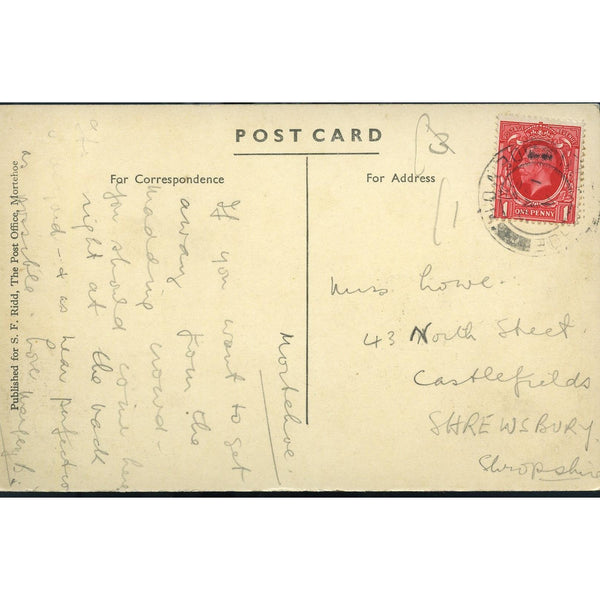 POST CARD
For Correspondence
For Address
Published for S. F. Ridd, The Post Office, Mortehoe
Mortehoe.
If you want to get
away from the
madding crowd -
you should come here
right at the back
of - & as near perfection
as possible. Love
ONE PENNY
1 1
Miss Lowe.
43 North Street.
Castlefields
SHREWSBURY.
Shropshire